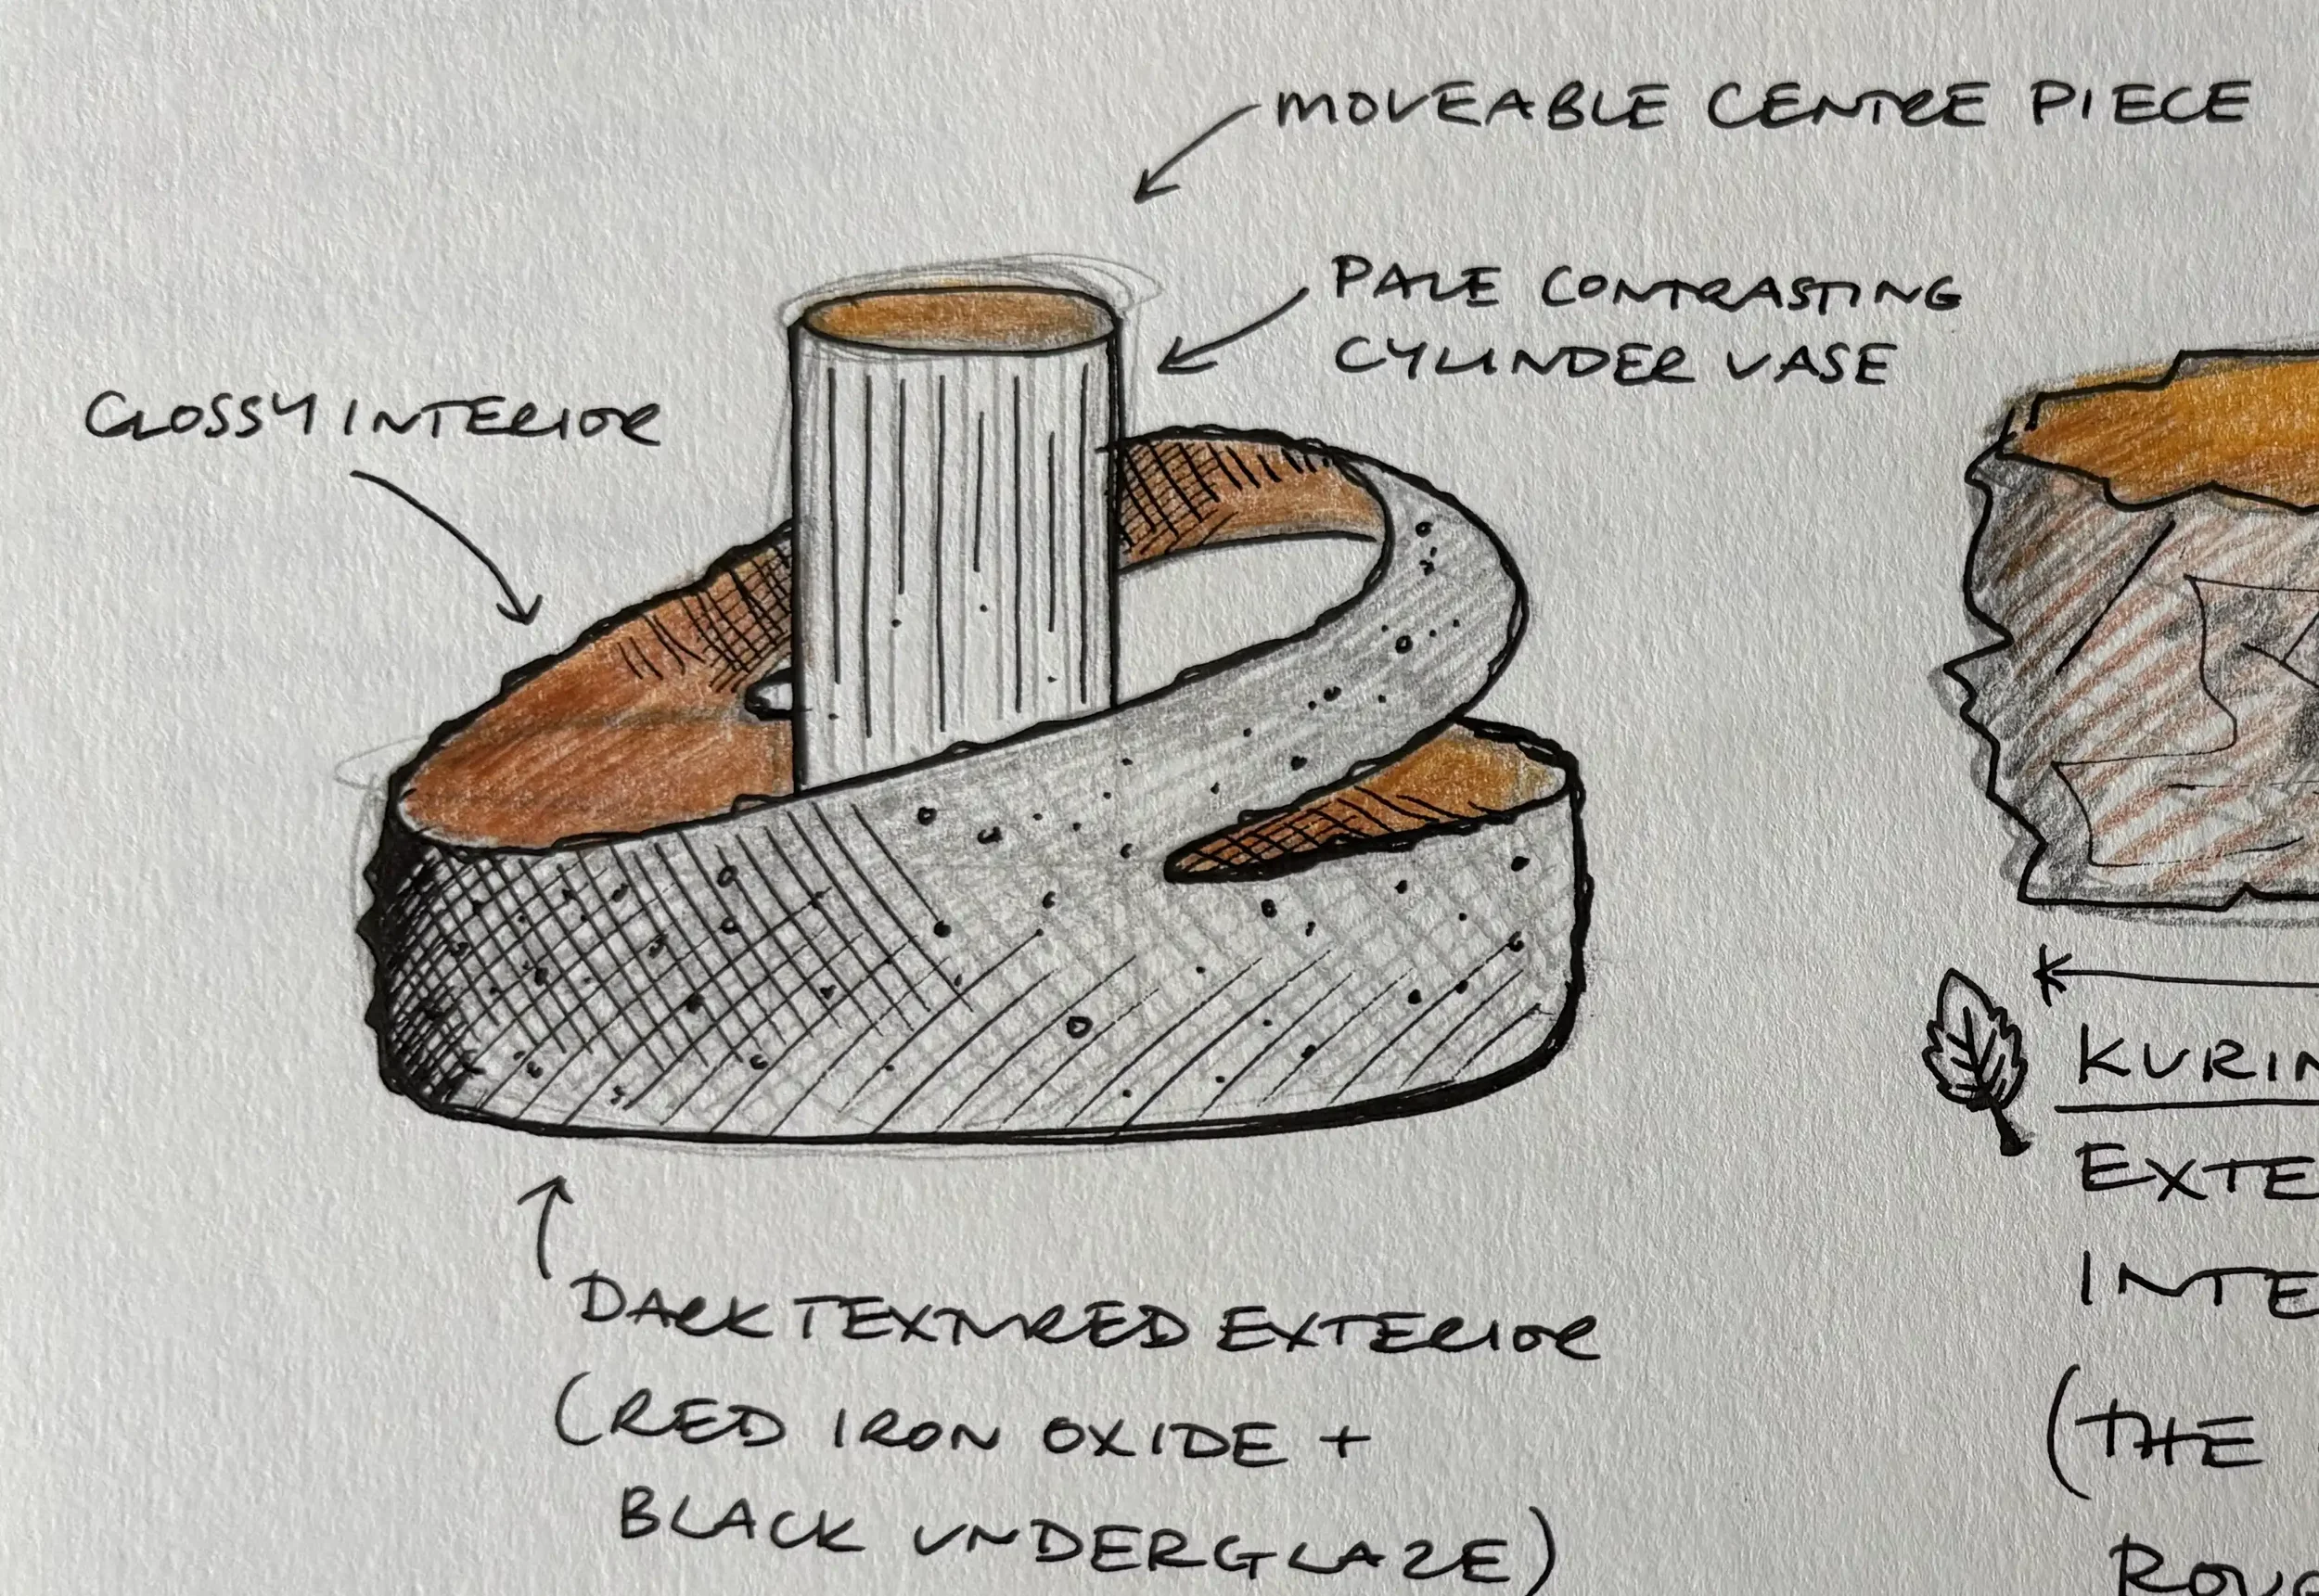 MOVEABLE CENTRE PIECE
PALE CONTRASTING
CYLINDER VASE
GLOSSY INTERIOR
DARK TEXTURED EXTERIOR
(RED IRON OXIDE +
BLACK UNDERGLAZE)
KURIN
EXTE
INTE
(THE
ROU